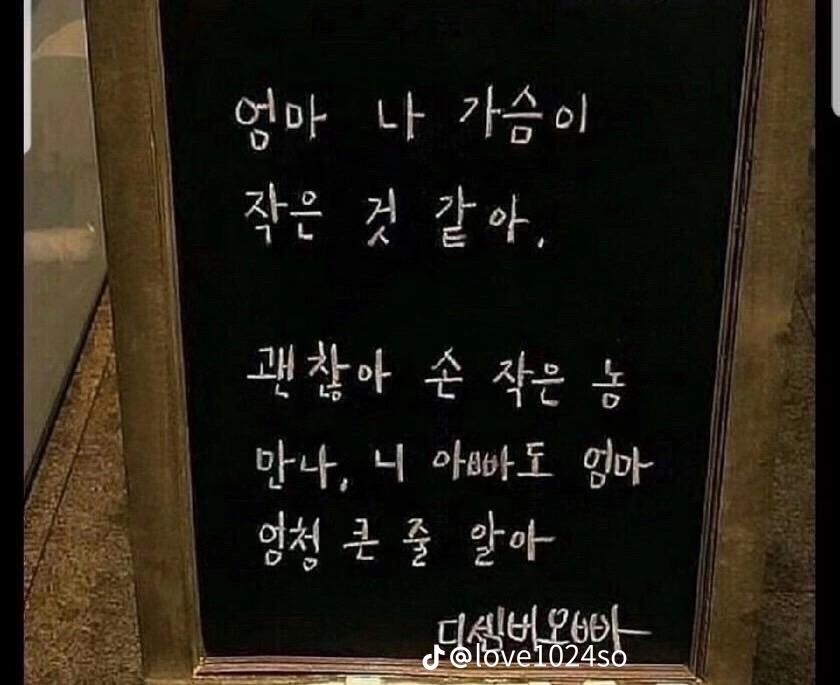 엄마 나 가슴이
작은 것 같아.
괜찮아 손 작은 놈
만나. 니 아빠도 엄마
엄청 큰 줄 알아
디셈버오빠
@love1024so